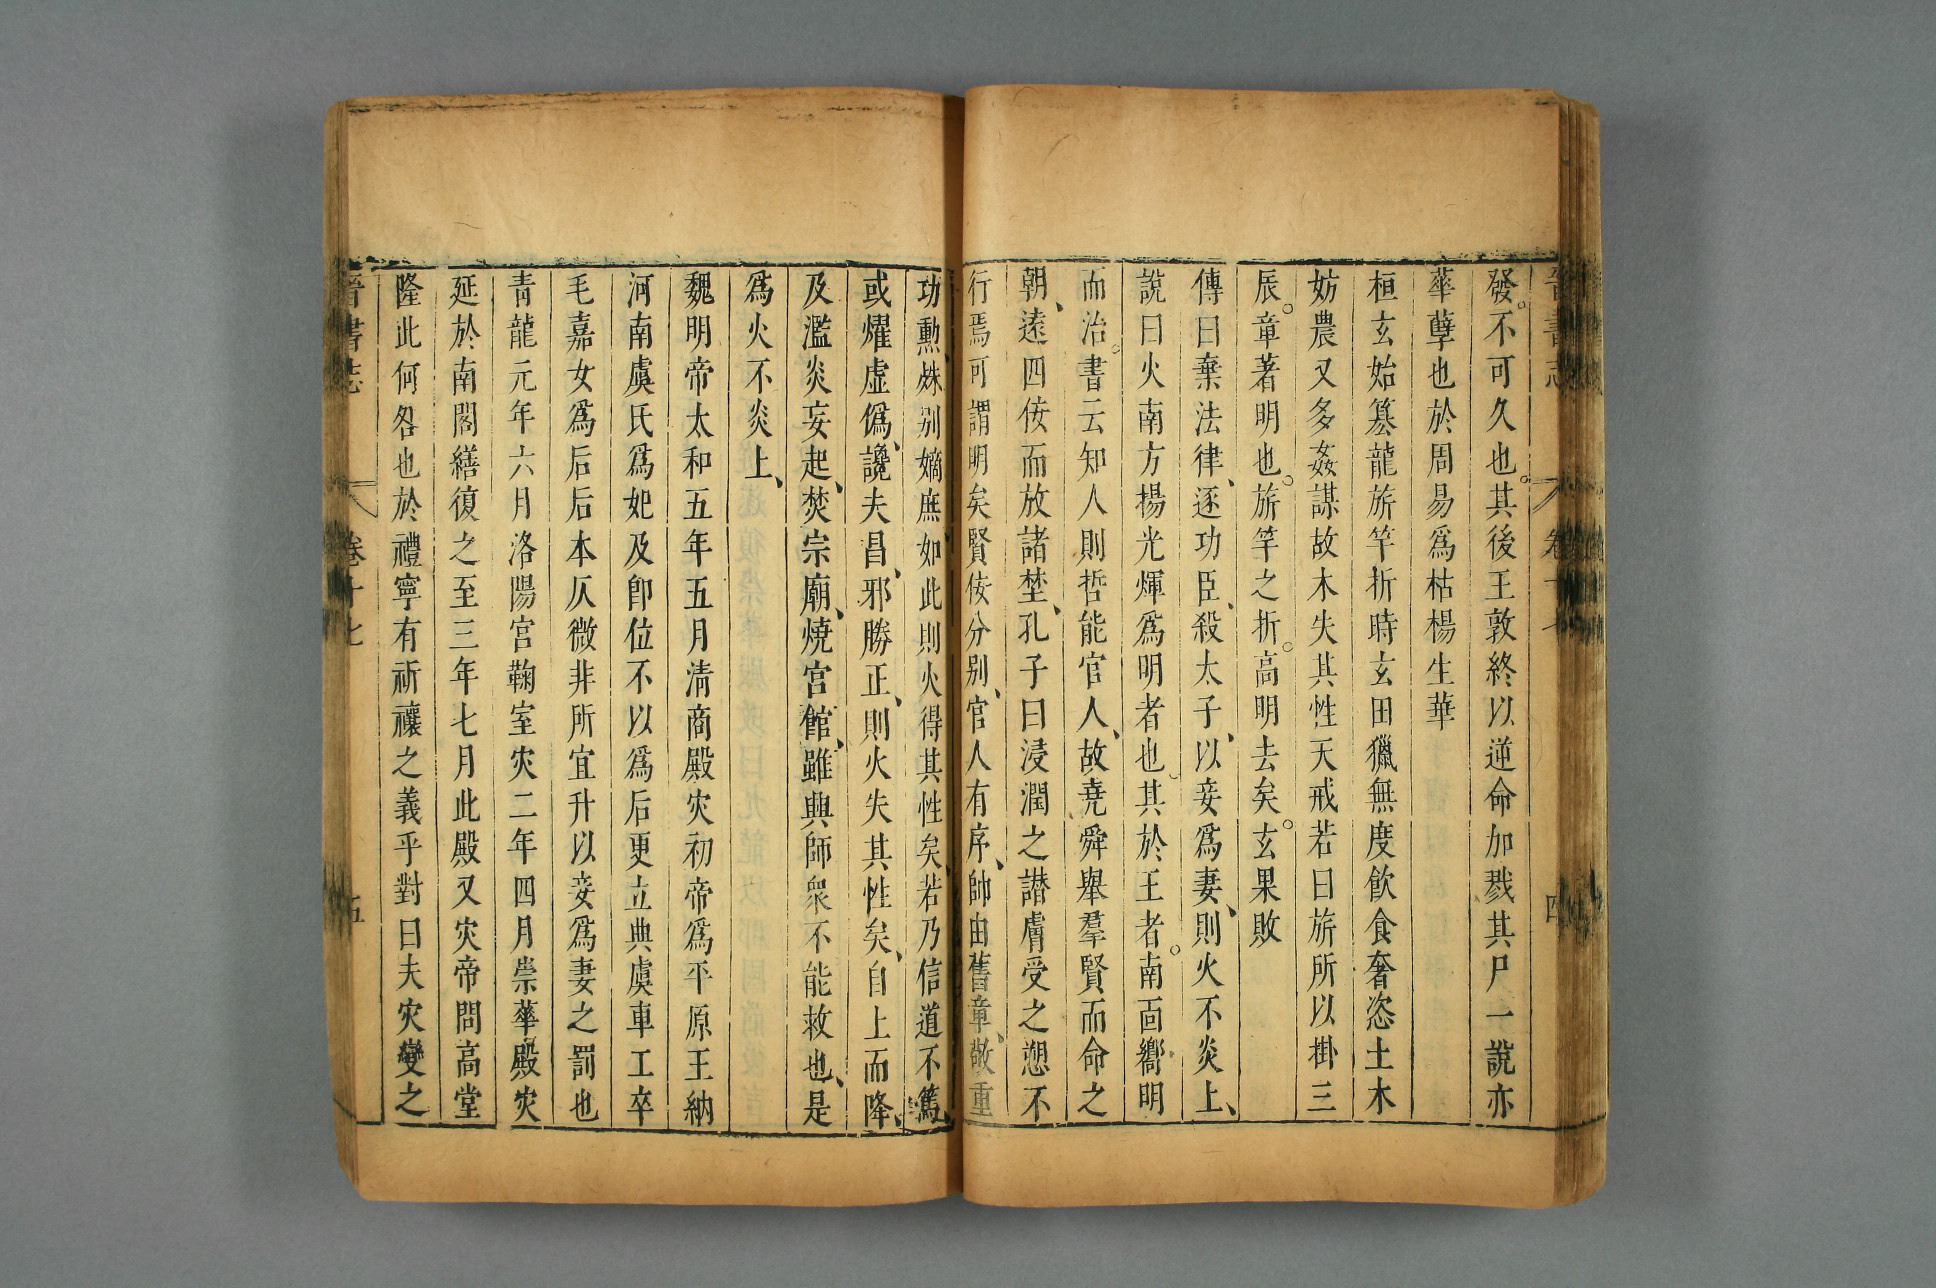 晉書志 卷十七 四
發。不可久也。其後王敦終以逆命加戮其尸一說亦
華孽也於周易爲枯楊生華
桓玄始簒龍旂竿折時玄田獵無度飮食奢恣土木
妨農又多姦謀故木失其性天戒若曰旂所以掛三
辰。章著明也。旂竿之折。高明去矣。玄果敗
傳曰棄法律、逐功臣、殺太子、以妾爲妻、則火不炎上、
說曰火南方揚光煇爲明者也。其於王者。南靣嚮明
而治。書云知人則哲能官人、故堯舜舉羣賢而命之
朝、遠四佞而放諸埜、孔子曰浸潤之譖膚受之愬不
行焉可謂明矣賢佞分别、官人有序、帥由舊章、敬重
功勲、殊别嫡庶、如此則火得其性矣、若乃信道不篤、
或燿虚僞、讒夫昌、邪勝正、則火失其性矣、自上而降、
及濫炎妄起、焚宗廟、燒宮館、雖興師衆不能救也、是
爲火不炎上、
魏明帝太和五年五月淸商殿灾初帝爲平原王納
河南虞氏爲妃及卽位不以爲后更立典虞車工卒
毛嘉女爲后后本仄微非所宜升以妾爲妻之罰也
青龍元年六月洛陽宮鞠室灾二年四月崇華殿灾
延於南閣繕復之至三年七月此殿又灾帝問高堂
隆此何咎也於禮寧有祈禳之義乎對曰夫灾變之
晉書志 卷十七 五